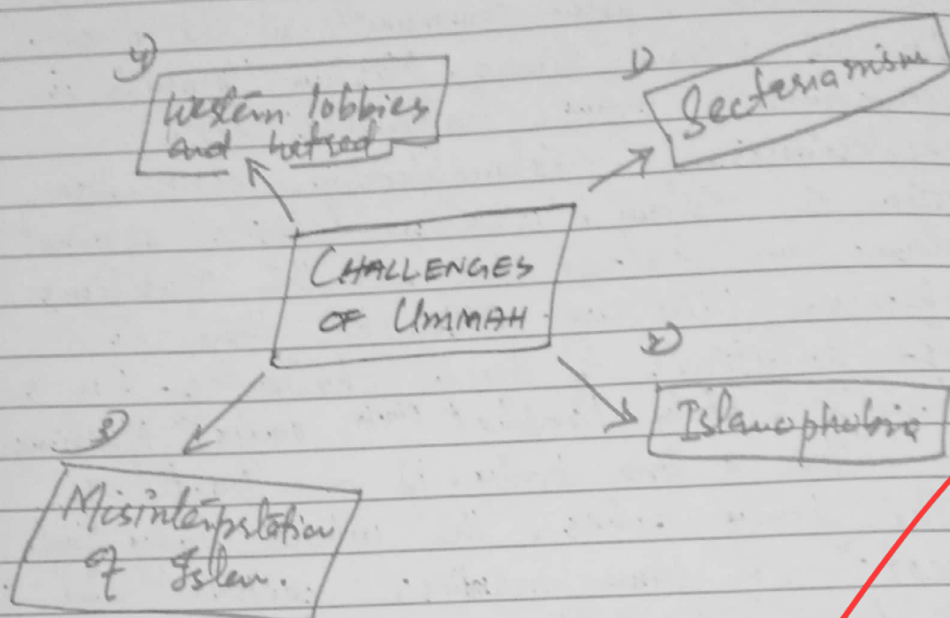 4)
Western lobbies
and hatred
1)
Sectarianism
CHALLENGES
OF UMMAH
2)
Islamophobia
3)
Misinterpretation
of Islam.